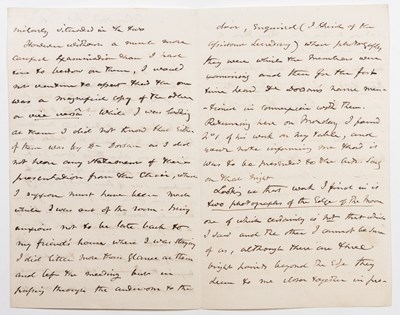 milarly situated in the two
However without a much more
careful examination than I had
time to bestow on them, I would
not venture to assert that the one
was a magnified copy of the other
or vice versa. While I was looking
at them I did not know that either
of them was by Dr. and I did
not hear any statement of their
presentation from the Chair, which
I suppose must have been made
while I was out of the room. Being
anxious not to be late back to
my friends' house where I was staying
I did little more than glance at them
and left the meeting but in
passing through the anteroom to the
door, enquired (I think of the
Assistant Secretary) whose photographs
they were while the members were
examining and then for the first
time heard Dr. name men-
tioned in connexion with them.
Returning here on Monday, I found
of his work on my table, and
your note informing me that it
was to be presented to the Ast. Socy
on that night
Looking at that work I find in it
two photographs of the Edge of the Moon
one of which certainly is not that which
I saw and the other I cannot be sure
of as, although there are three
bright points beyond the Edge they
seem to me closer together in pro-